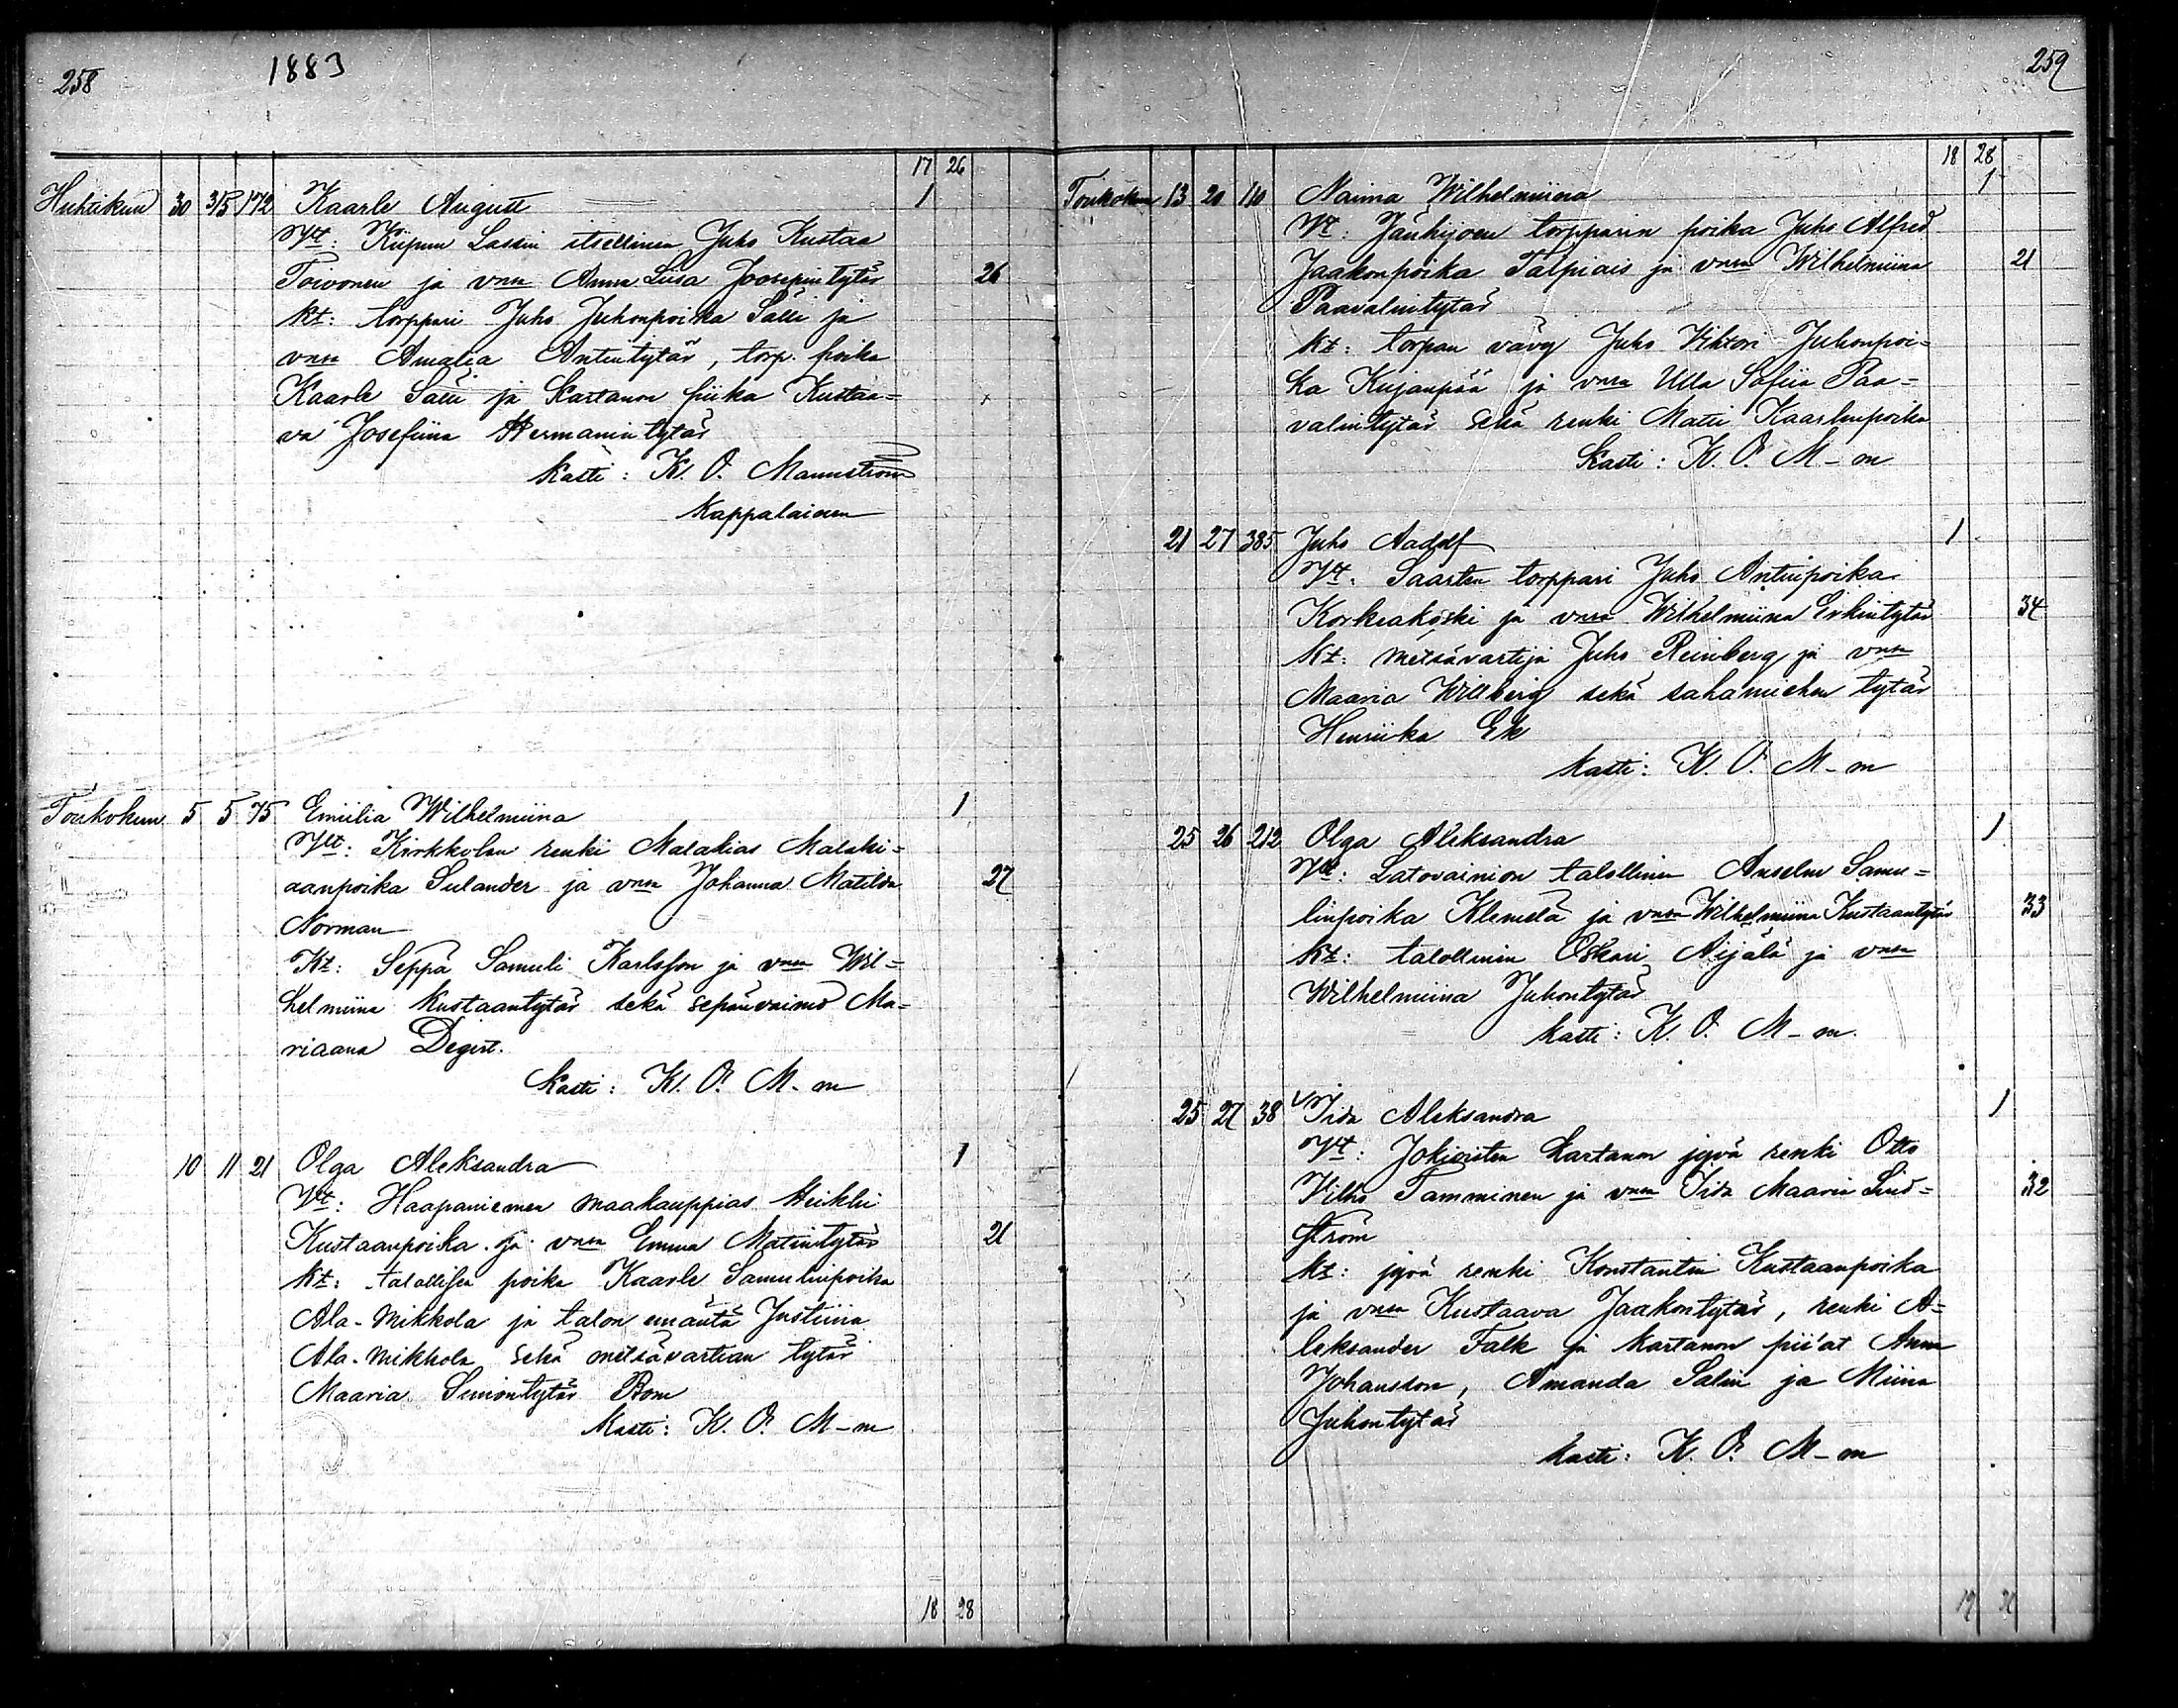 258
1883
17 26
Huhtikuu 30 3/5 172 Kaarle August 1
Vt: Kiipun Lassin itsellinen Juho Kustaa
Toivonen ja vmsa Anna Liisa Joosepintytär 26
kt: torppari Juho Juhonpoika Sälli ja
vmsa Amalia Antintytär, torp. poika
Kaarle Sälli ja Kartanon piika Kustaa=
va Josefiina Hermanintytär
kasti: K. O. Mannström
Kappalainen
Toukokuu 5 5 75 Emilia Wilhelmiina 1
Vt: Kirkkolan renki Malakias Malaki=
aanpoika Sulander ja vmsa Johanna Matilda 27
Norman
Kt: Seppä Samuli Karlsson ja vmsa Wil=
helmiina Kustaantytär sekä sepänvaimo Ma-
riaana Degert.
kasti: K. O. M-m
10 11 21 Olga Aleksandra 1
Vt: Haapaniemen maakauppias Heikki
Kustaanpoika ja vmsa Emma Matintytär 21
kt: talollisen poika Kaarle Samulinpoika
Ala-Mikkola ja talon emäntä Justiina
Ala-Mikkola sekä metsävartian tytär
Maaria Simontytär Rom
kasti: K. O. M-m
18 28
259
18 28
Toukokuu 13 20 110 Naima Wilhelmiina 1
Vt: Jänhijoen torpparin poika Juho Alfred
Jaakonpoika Talpiais ja vmsa Wilhelmiina 21
Paavalintytär
kt: torpan vävy Juho Viktori Juhonpoi=
ka Kujanpää ja vmsa Ulla Sofiia Paa=
valintytär sekä renki Matti Kaarlenpoika
kasti: K. O. M-m
21 27 385 Juho Aadolf 1
Vt: Saarten torppari Juho Antinpoika
Korkeakoski ja vmsa Wilhelmiina Erkintytär 34
kt: metsävartija Juho Reinberg ja vmsa
Maaria Willberg sekä sahamiehen tytär
Henriika Ek
kasti: K. O. M-m
25 26 212 Olga Aleksandra 1
Vt: Latovainion talollinen Anselm Samu=
linpoika Klemelä ja vmsa Wilhelmiina Kustaantytär 33
kt: talollinen Oskari Äijälä ja vmsa
Wilhelmiina Juhontytär
kasti: K. O. M-m.
25 27 38 Iida Aleksandra 1
Vt: Jokioisten kartanon jyvä renki Otto
Vilho Tamminen ja vmsa Iida Maaria Lind= 32
ström
kt: jyvä renki Konstantin Kustaanpoika
ja vmsa Kustaava Jaakontytär, renki A=
leksander Falk ja kartanon piiat Anna
Johansson, Amanda Salin ja Miina
Juhontytär
kasti: K. O. M-m
19 31